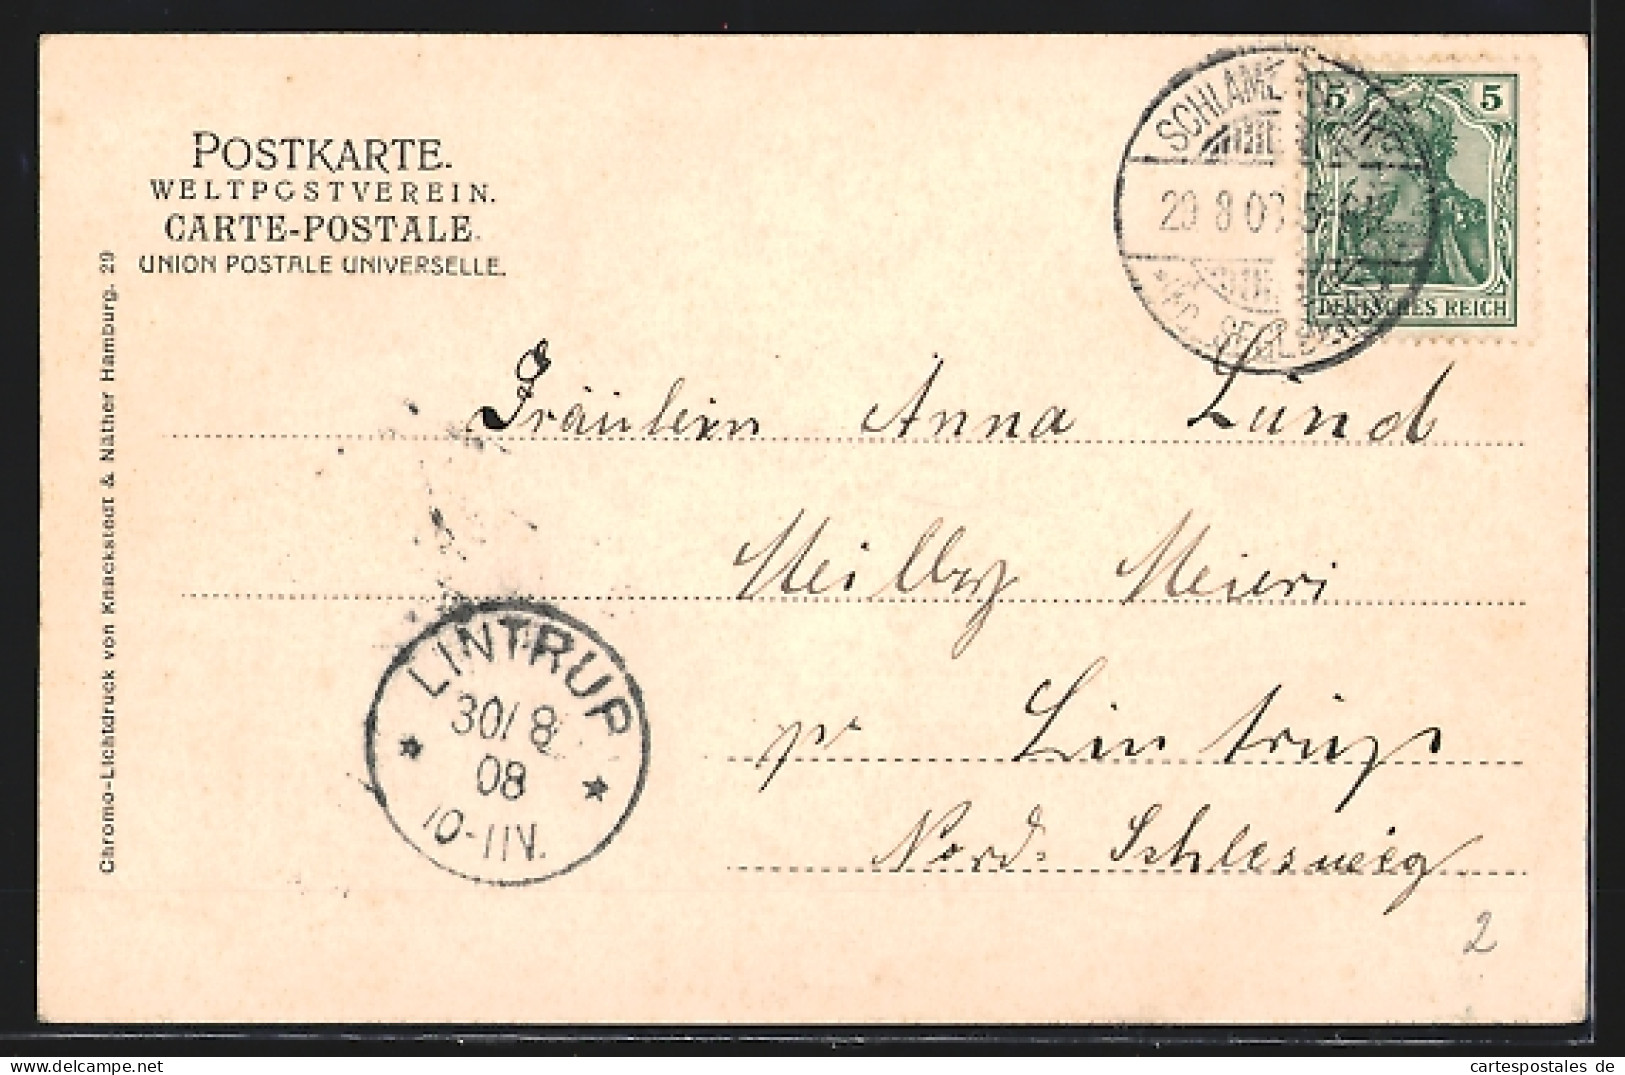 POSTKARTE.
WELTPOSTVEREIN.
CARTE-POSTALE.
UNION POSTALE UNIVERSELLE.
5 5
DEUTSCHES REICH
29 8 08
Fräulein Anna Lund
Meilby Meieri
pr Lintrup
Nord: Schleswig
LINTRUP
30/8
08
10-11V.
Chromo-Lichtdruck von Knackstedt & Näther Hamburg. 29
2
cartespostales de